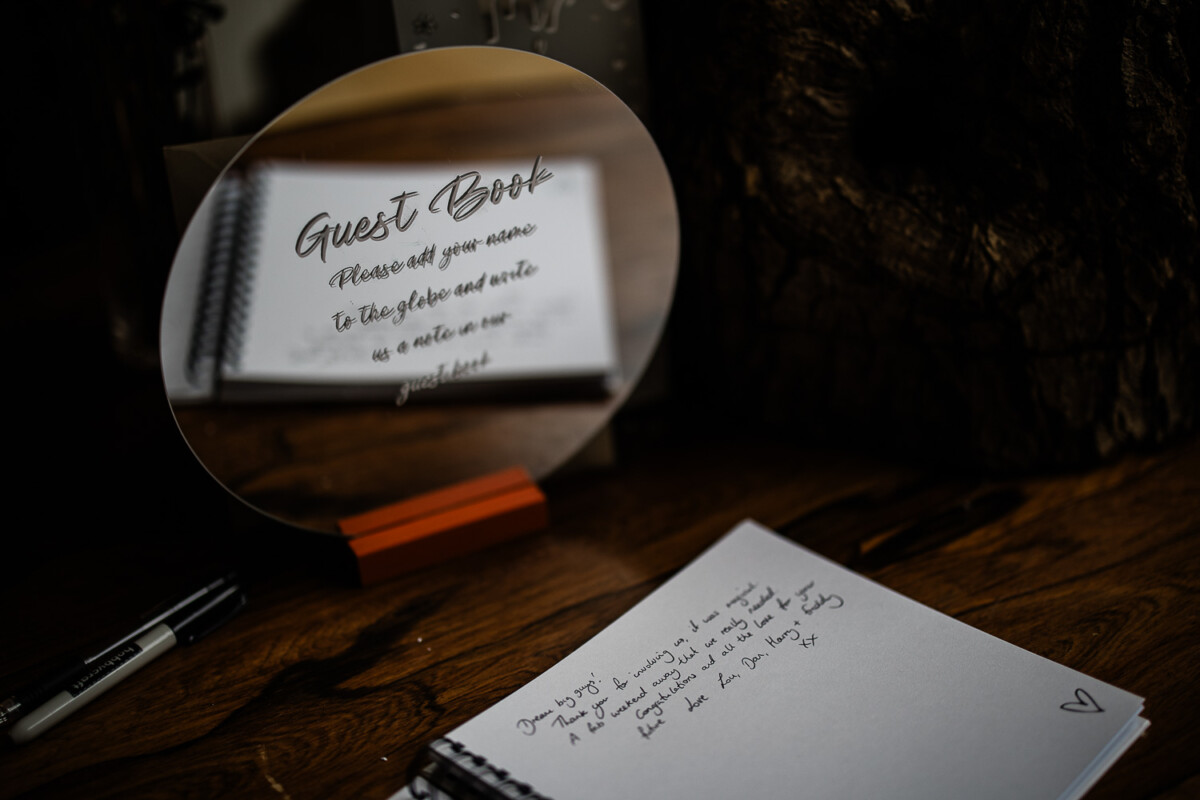 Guest Book
Please add your name
to the globe and write
us a note in our
guest book
hobbycraft
Thank you for involving us, it was magical
A fab weekend away that we really needed
Congratulations and all the love for your
future Love Lou, Dan, Harry +
xx